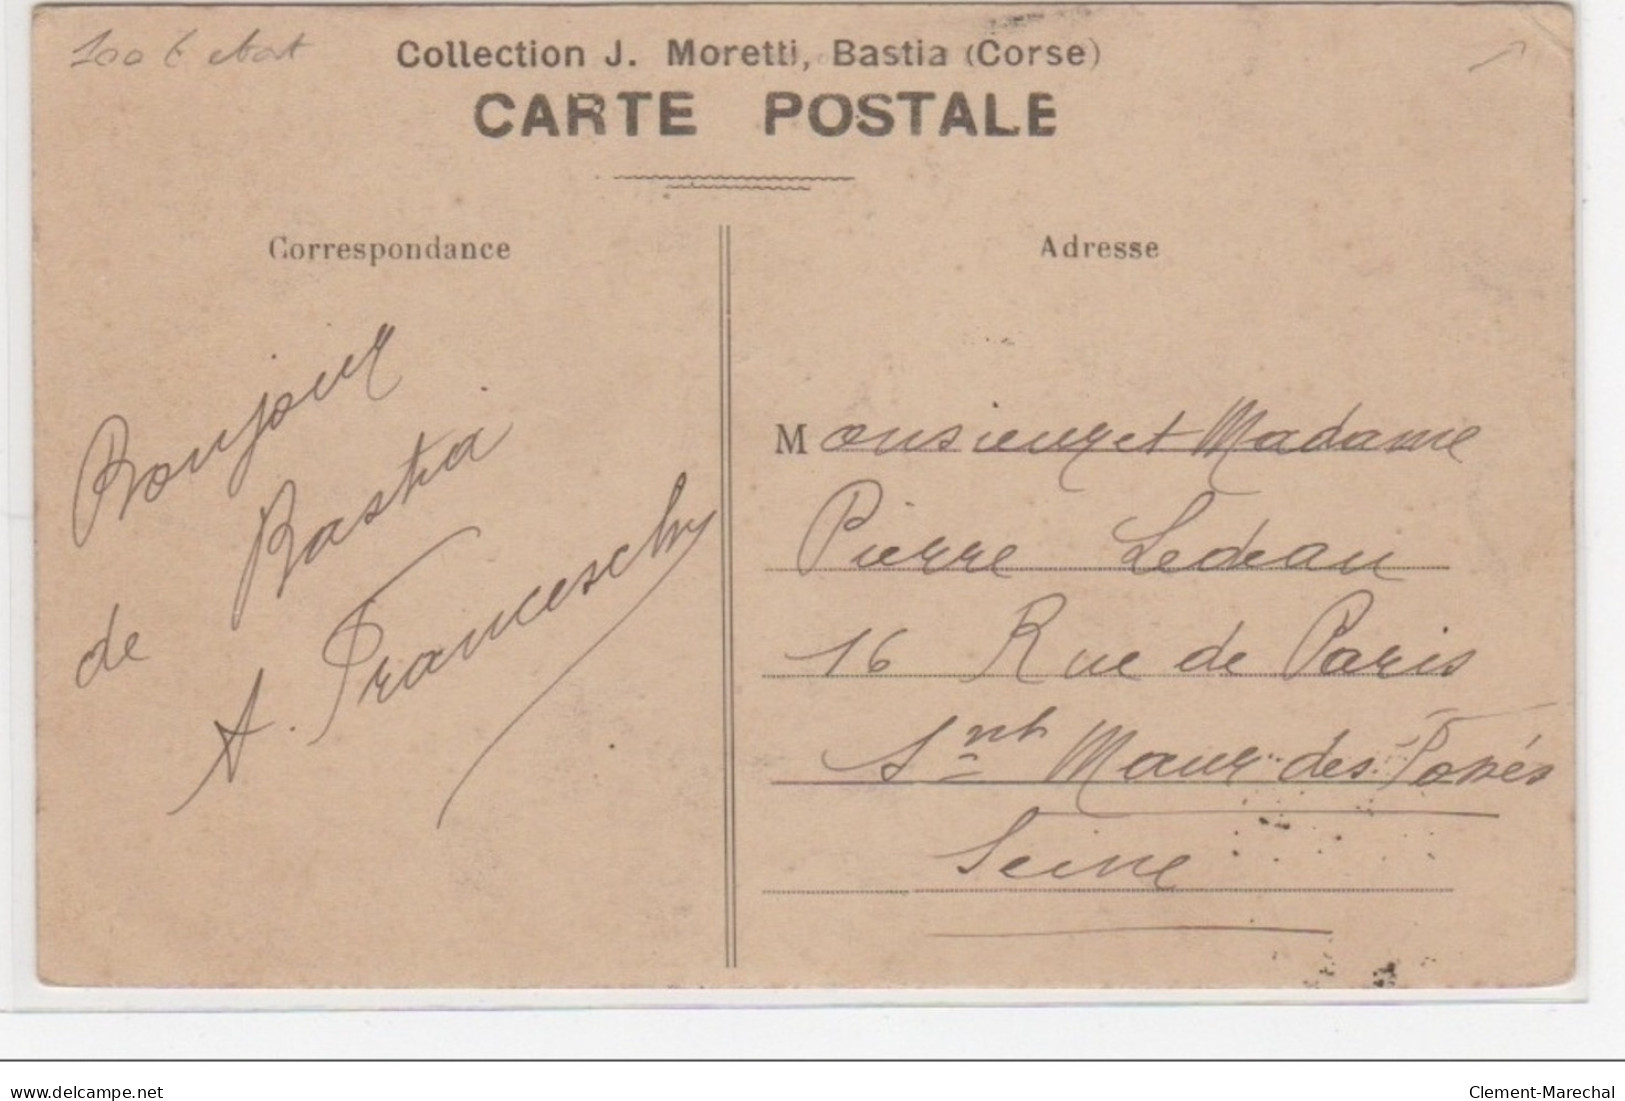 100 € état
Collection J. Moretti, Bastia (Corse)
CARTE POSTALE
Correspondance
Adresse
Bonjour
de Bastia
A. Franceschi
Monsieur et Madame
Pierre Ledeau
16 Rue de Paris
St Maur des Fossés
Seine
delcampe.net
Clement-Marechal